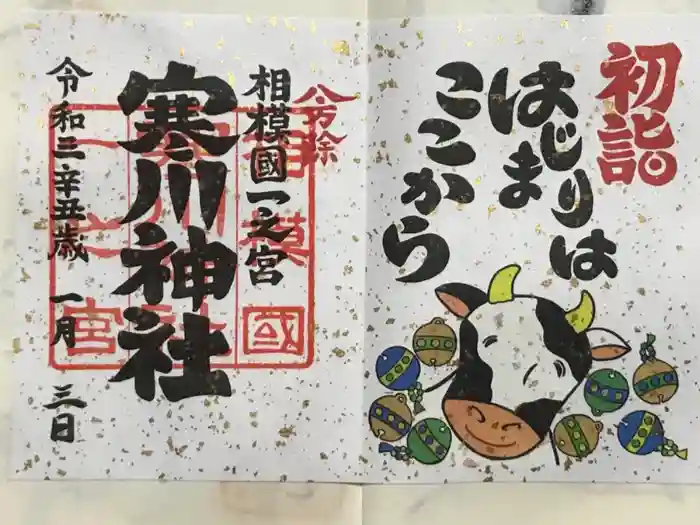 初詣
はじまりは
ここから
八方除
相模國一之宮
寒川神社
令和三辛丑歳 一月 三日
相模國
一之宮